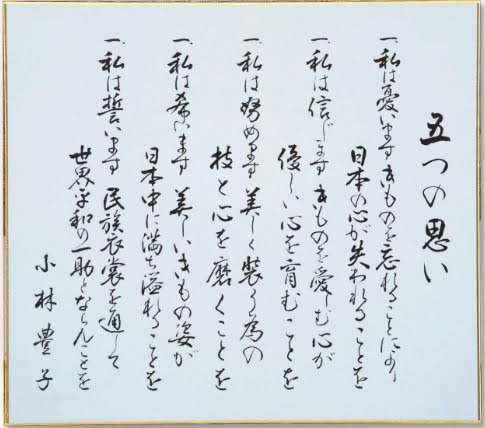 五つの思い
一、私は憂います きものを忘れることにより
日本の心が失われることを
一、私は信じます きものを愛しむ心が
優しい心を育むことを
一、私は努めます 美しく装う為の
技と心を磨くことを
一、私は希います 美しいきもの姿が
日本中に満ち溢れることを
一、私は誓います 民族衣裳を通して
世界平和の一助とならんことを
小林豊子